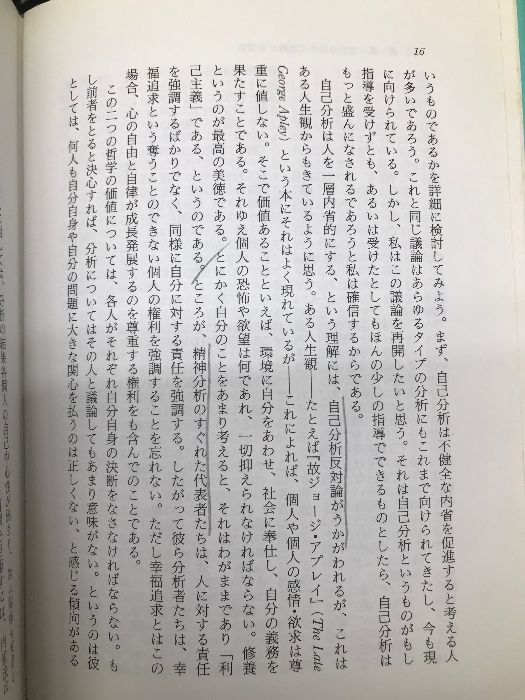 16
いうものであるかを詳細に検討してみよう。まず、自己分析は不健全な内省を促進すると考える人
が多いであろう。これと同じ議論はあらゆるタイプの分析にもこれまで向けられてきたし、今も現
に向けられている。しかし、私はこの議論を再開したいと思う。それは自己分析というものがもし
指導を受けずとも、あるいは受けたとしてもほんの少しの指導でできるものとしたら、自己分析は
もっと盛んになされるであろうと私は確信するからである。
自己分析は人を一層内省的にする、という理解には、自己分析反対論がうかがわれるが、これは
ある人生観からもきているように思う。ある人生観——たとえば『故ジョージ・アプレイ』(The Late
George Apley) という本にそれはよく現れているが——これによれば、個人や個人の感情・欲求は尊
重に値しない。そこで価値あることといえば、環境に自分をあわせ、社会に奉仕し、自分の義務を
果たすことである。それゆえ個人の恐怖や欲望は何であれ、一切抑えられなければならない。修養
というのが最高の美徳である。とにかく自分のことをあまり考えると、それはわがままであり「利
己主義」である、というのである。ところが、精神分析のすぐれた代表者たちは、人に対する責任
を強調するばかりでなく、同様に自分に対する責任を強調する。したがって彼ら分析者たちは、幸
福追求という奪うことのできない個人の権利を強調することを忘れない。ただし幸福追求とはこの
場合、心の自由と自律が成長発展するのを尊重する権利をも含んでのことである。
この二つの哲学の価値については、各人がそれぞれ自分自身の決断をなさなければならない。も
し前者をとると決心すれば、分析についてはその人と議論してもあまり意味がない。というのは彼
としては、何人も自分自身や自分の問題に大きな関心を払うのは正しくない、と感じる傾向がある